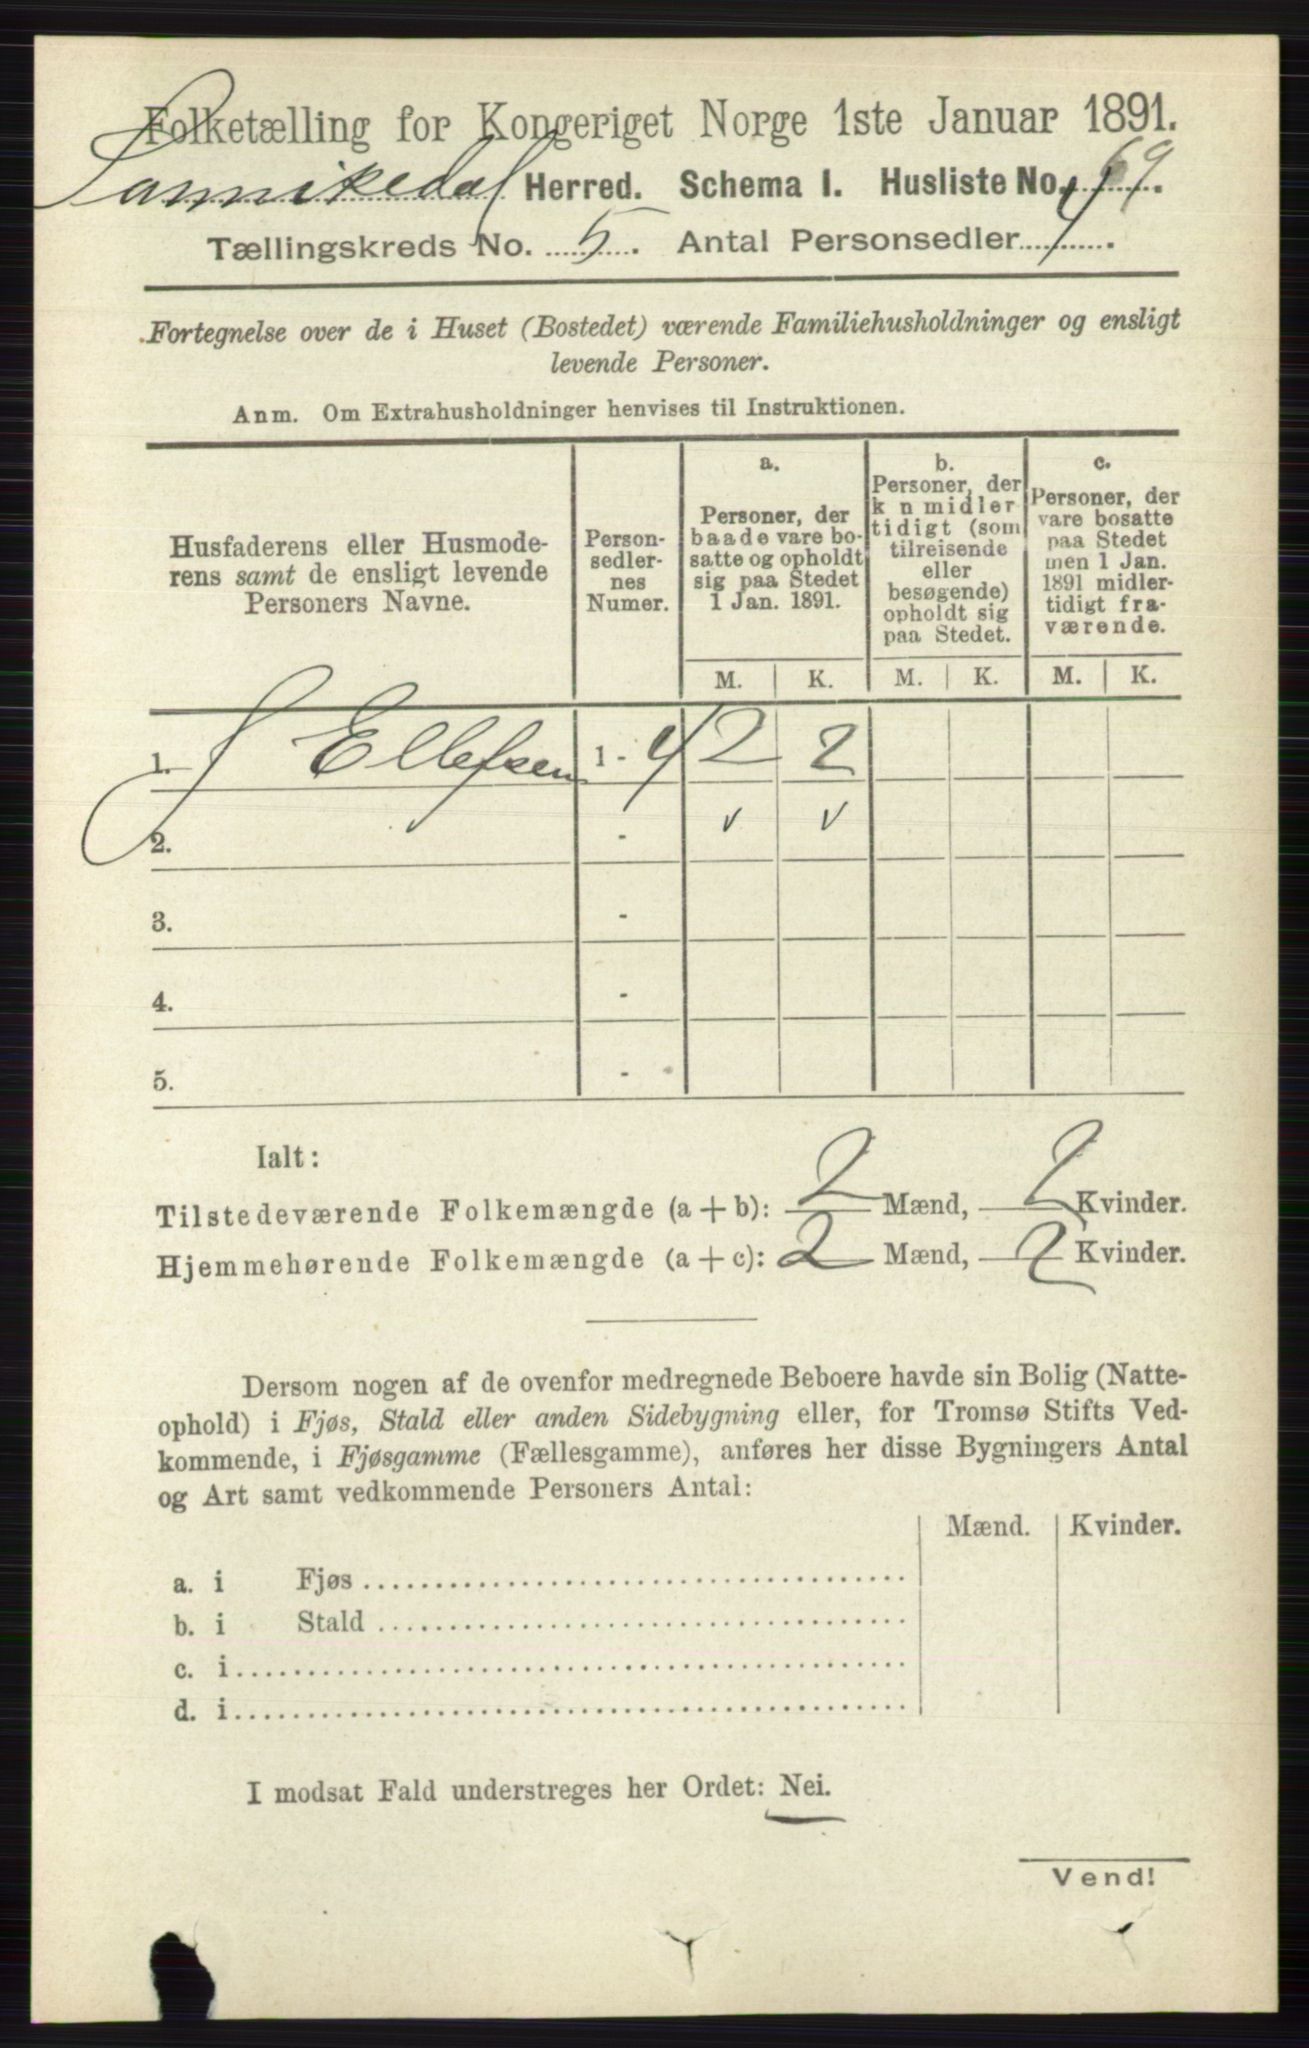 Folketælling for Kongeriget Norge 1ste Januar 1891.
Sannikedal Herred. Schema I. Husliste No. 69.
Tællingskreds No. 5. Antal Personsedler 4.
Fortegnelse over de i Huset (Bostedet) værende Familiehusholdninger og ensligt
levende Personer.
Anm. Om Extrahusholdninger henvises til Instruktionen.
Husfaderens eller Husmode-
rens samt de ensligt levende
Personers Navne.
Person-
sedler-
nes
Numer.
a.
Personer, der
baade vare bo-
satte og opholdt
sig paa Stedet
1 Jan. 1891.
b.
Personer, der
k n midler
tidigt (som
tilreisende
eller
besøgende)
opholdt sig
paa Stedet.
c.
Personer, der
vare bosatte
paa Stedet
men 1 Jan.
1891 midler-
tidigt fra-
værende.
M. K. M. K. M. K.
1. J Ellefsen 1 - 4 2 2
2. - v v
3. -
4. -
5. -
Ialt:
Tilstedeværende Folkemængde (a + b): 2 Mænd, 2 Kvinder.
Hjemmehørende Folkemængde (a + c): 2 Mænd, 2 Kvinder.
Dersom nogen af de ovenfor medregnede Beboere havde sin Bolig (Natte-
ophold) i Fjøs, Stald eller anden Sidebygning eller, for Tromsø Stifts Ved-
kommende, i Fjøsgamme (Fællesgamme), anføres her disse Bygningers Antal
og Art samt vedkommende Personers Antal:
Mænd. Kvinder.
a. i Fjøs
b. i Stald
c. i
d. i
I modsat Fald understreges her Ordet: Nei.
Vend!